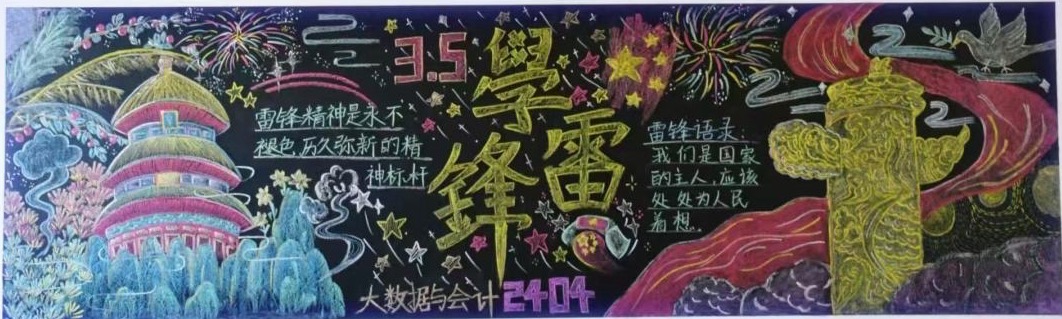 3.5
學雷鋒
雷锋精神是永不
褪色,历久弥新的精
神标杆
雷锋语录:
我们是国家
的主人,应该
处处为人民
着想.
大数据与会计2404